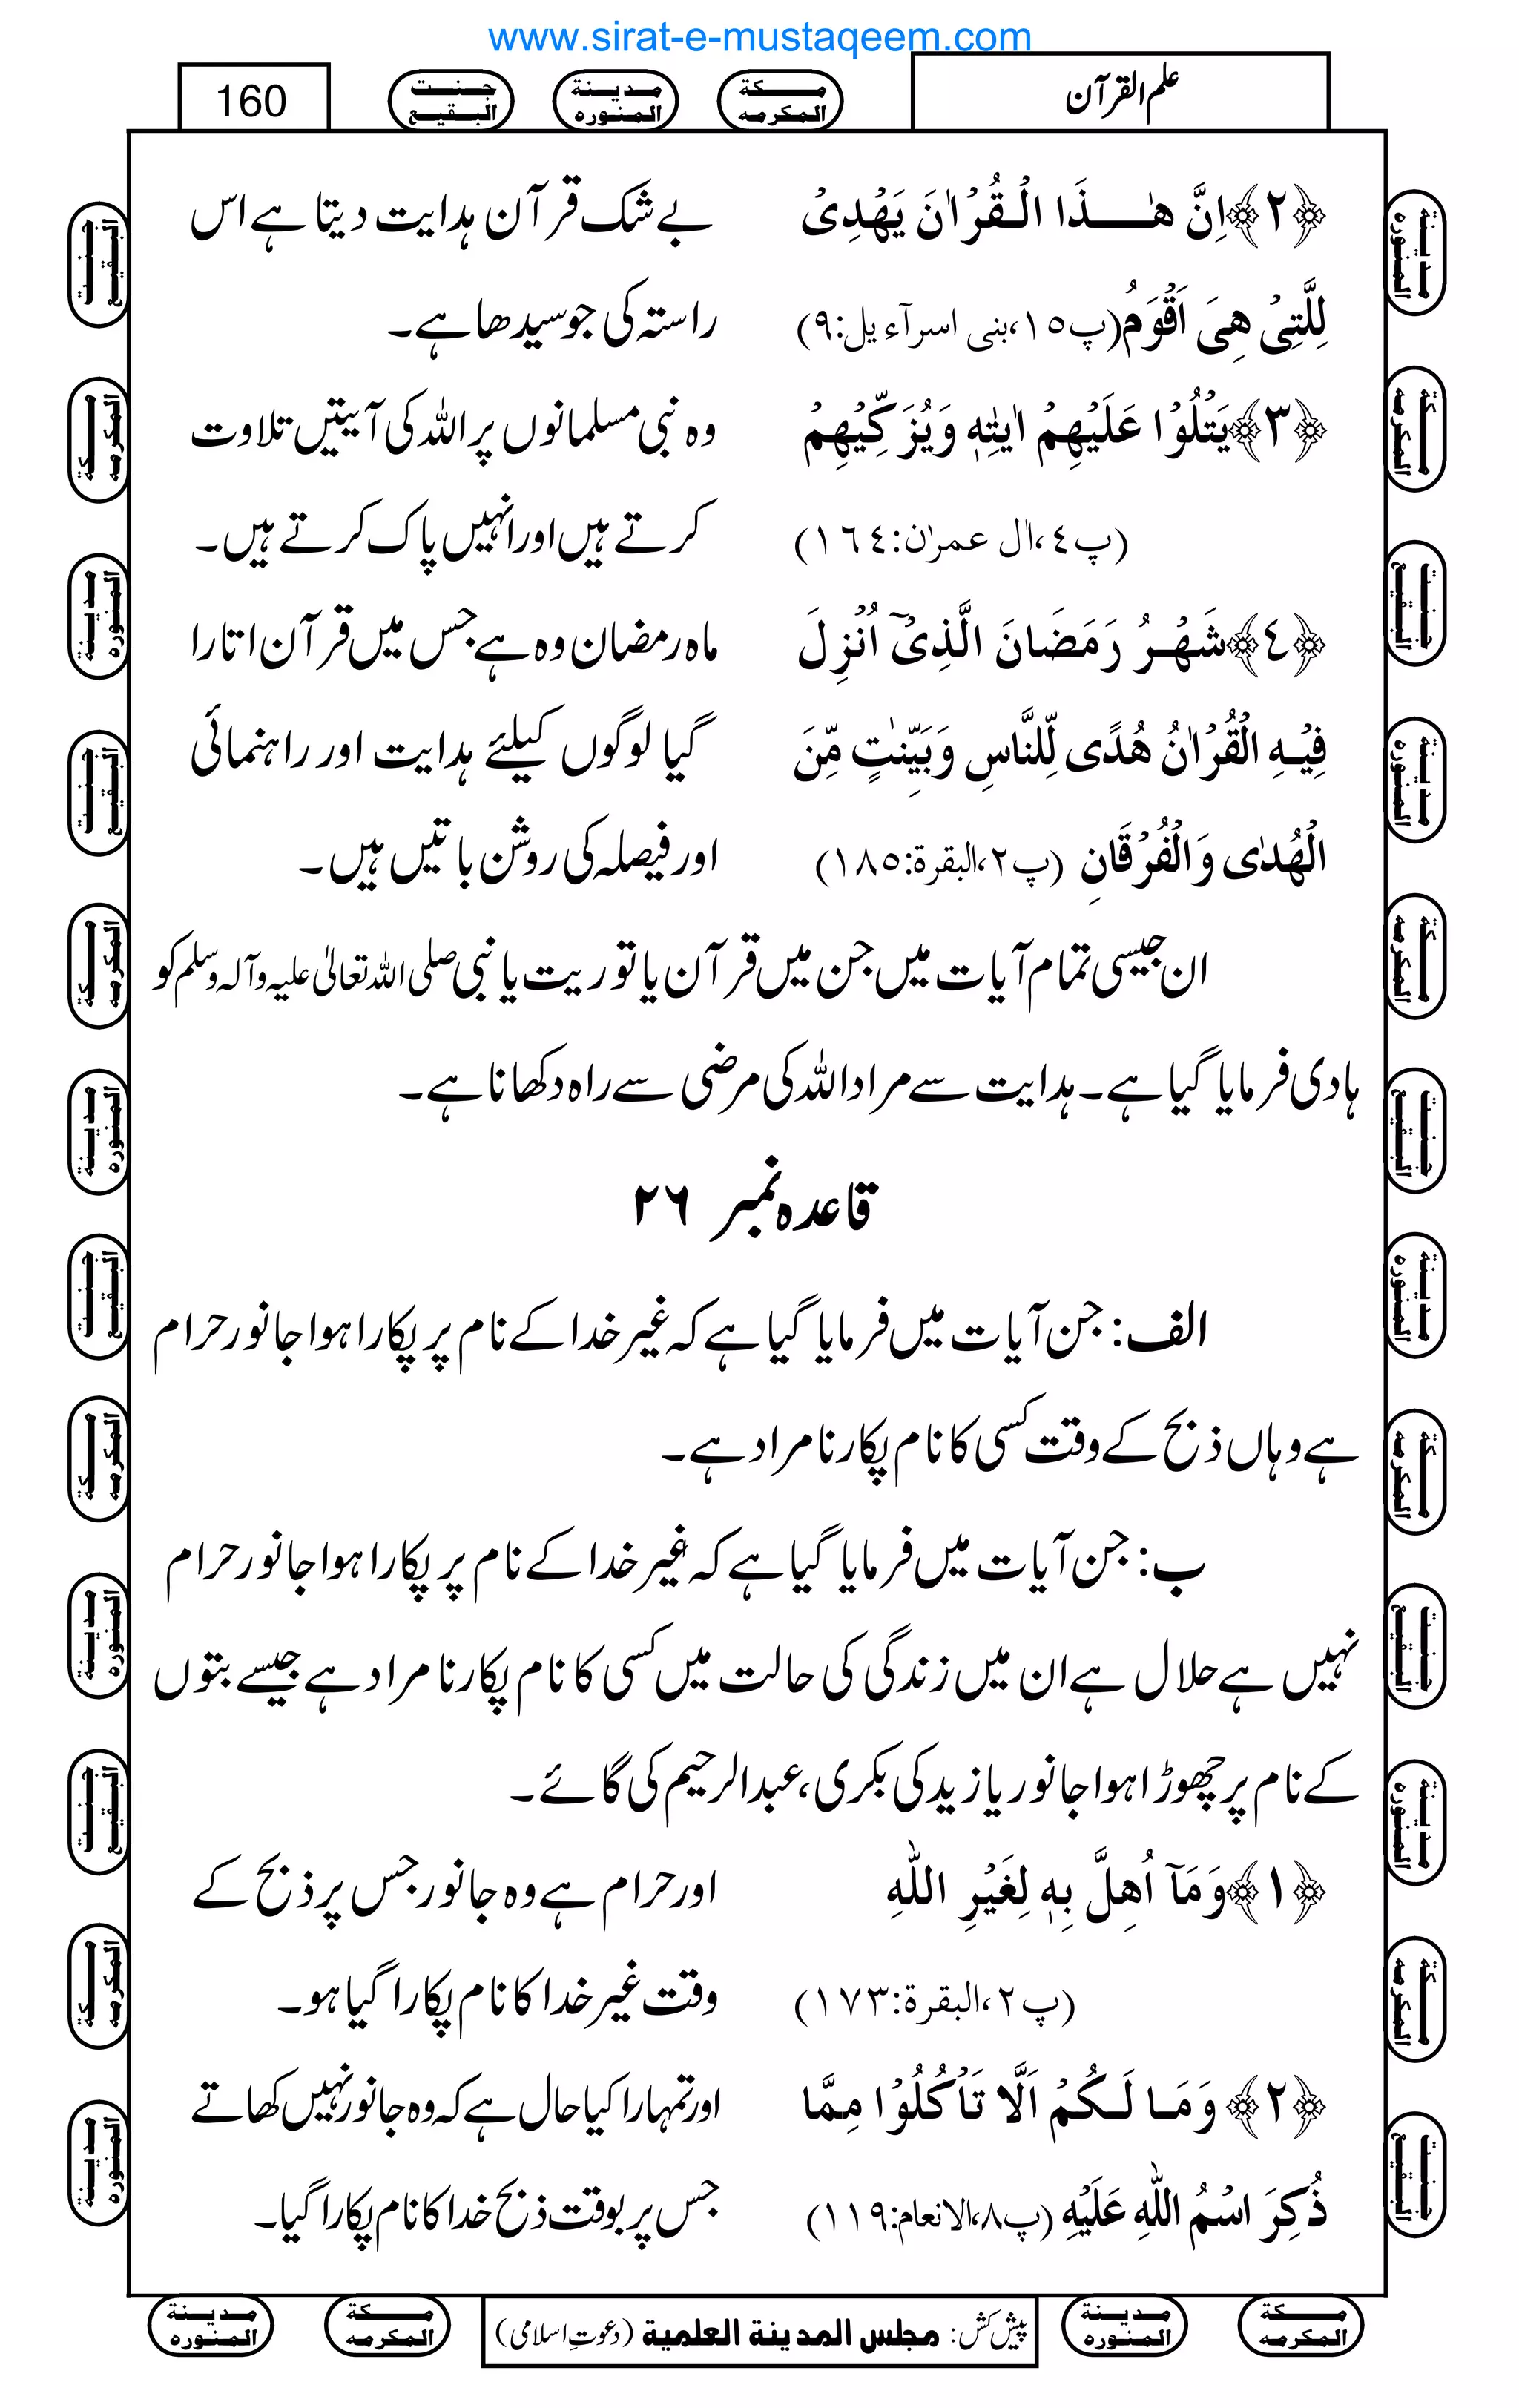 www.sirat-e-mustaqeem.com
علم القرآن
مــكة المكرمه
مـديـنة المنوره
جـنـت البقيع
160
﴿٢﴾ اِنَّ هٰـذَا الْـقُرْاٰنَ يَهْدِىْ بے شک قرآن ہدایت دیتا ہے اس
لِلَّتِىْ هِىَ اَقْوَمُ (پ١٥،بنی اسرآءيل:٩) راستہ کی جو سیدھا ہے۔
﴿٣﴾ يَتْلُوْا عَلَيْهِمْ اٰيٰتِهٖ وَيُزَكِّيْهِمْ وہ نبی مسلمانوں پر اللہ کی آیتیں تلاوت
(پ٤،اٰل عمرٰن:١٦٤) کرتے ہیں اور انہیں پاک کرتے ہیں۔
﴿٤﴾ شَهْـرُ رَمَضَانَ الَّذِىْٓ اُنْزِلَ ماہ رمضان وہ ہے جس میں قرآن اتارا
فِيْـهِ الْقُرْاٰنُ هُدًى لِّلنَّاسِ وَبَيِّنٰتٍ مِّنَ گیا لوگوں کیلئے ہدایت اور راہنمائی
الْهُدٰى وَالْفُرْقَانِ (پ٢،البقرة:١٨٥) اور فیصلہ کی روشن باتیں ہیں۔
ان جیسی تمام آیات میں جن میں قرآن یا توریت یا نبی صلی اللہ تعالیٰ علیہ وآلہ وسلم کو
ہادی فرمایا گیا ہے۔ ہدایت سے مراد اللہ کی مرضی سے راہ دکھانا ہے۔
قاعدہ نمبر ٢٦
الف: جن آیات میں فرمایا گیا ہے کہ غیر خدا کے نام پر پکارا ہوا جانور حرام
ہے وہاں ذبح کے وقت کسی کا نام پکارنا مراد ہے۔
ب: جن آیات میں فرمایا گیا ہے کہ غیر خدا کے نام پر پکارا ہوا جانور حرام
نہیں ہے حلال ہے ان میں زندگی کی حالت میں کسی کا نام پکارنا مراد ہے جیسے بتوں
کے نام پر چھوڑا ہوا جانور یا زید کی بکری، عبدالرحیم کی گائے۔
﴿١﴾ وَمَآ اُهِلَّ بِهٖ لِغَيْرِ اللّٰهِ اور حرام ہے وہ جانور جس پر ذبح کے
(پ٢،البقرة:١٧٣) وقت غیر خدا کا نام پکارا گیا ہو۔
﴿٢﴾ وَمَـا لَـكُمْ اَلَّا تَاْكُلُوْا مِمَّا اور تمہارا کیا حال ہے کہ وہ جانور نہیں کھاتے
ذُكِرَ اسْمُ اللّٰهِ عَلَيْهِ (پ٨،الانعام:١١٩) جس پر بوقت ذبح خدا کا نام پکارا گیا۔
مــكة المكرمه
مـديـنة المنوره
پیش کش: مجلس المدينة العلمية (دعوتِ اسلامی)
مــكة المكرمه
مـديـنة المنوره